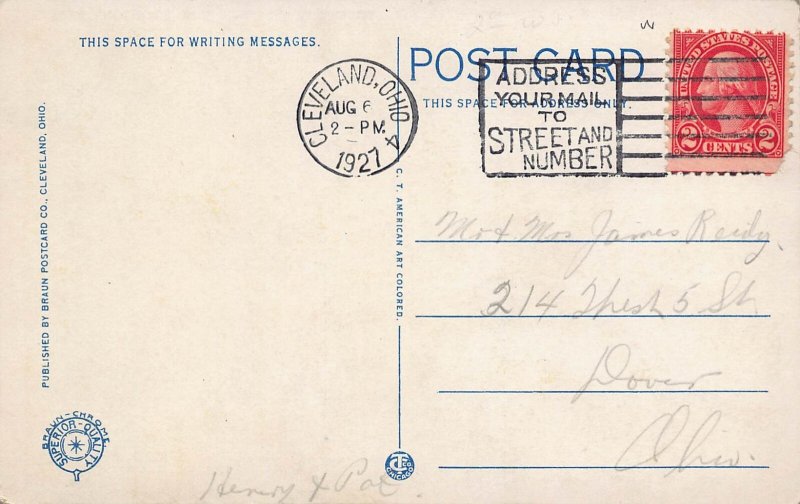 THIS SPACE FOR WRITING MESSAGES.
POST CARD
THIS SPACE FOR ADDRESS ONLY.
CLEVELAND, OHIO 4
AUG 6
2-PM.
1927
ADDRESS
YOUR MAIL
TO
STREET AND
NUMBER
UNITED STATES POSTAGE
2 CENTS 2
PUBLISHED BY BRAUN POSTCARD CO., CLEVELAND, OHIO.
C. T. AMERICAN ART COLORED.
Mr & Mrs James Reidy.
214 West 5 St
Dover
Ohio.
BRAUN-CHROME
SUPERIOR-QUALITY
CT CO.
CHICAGO
Henry &